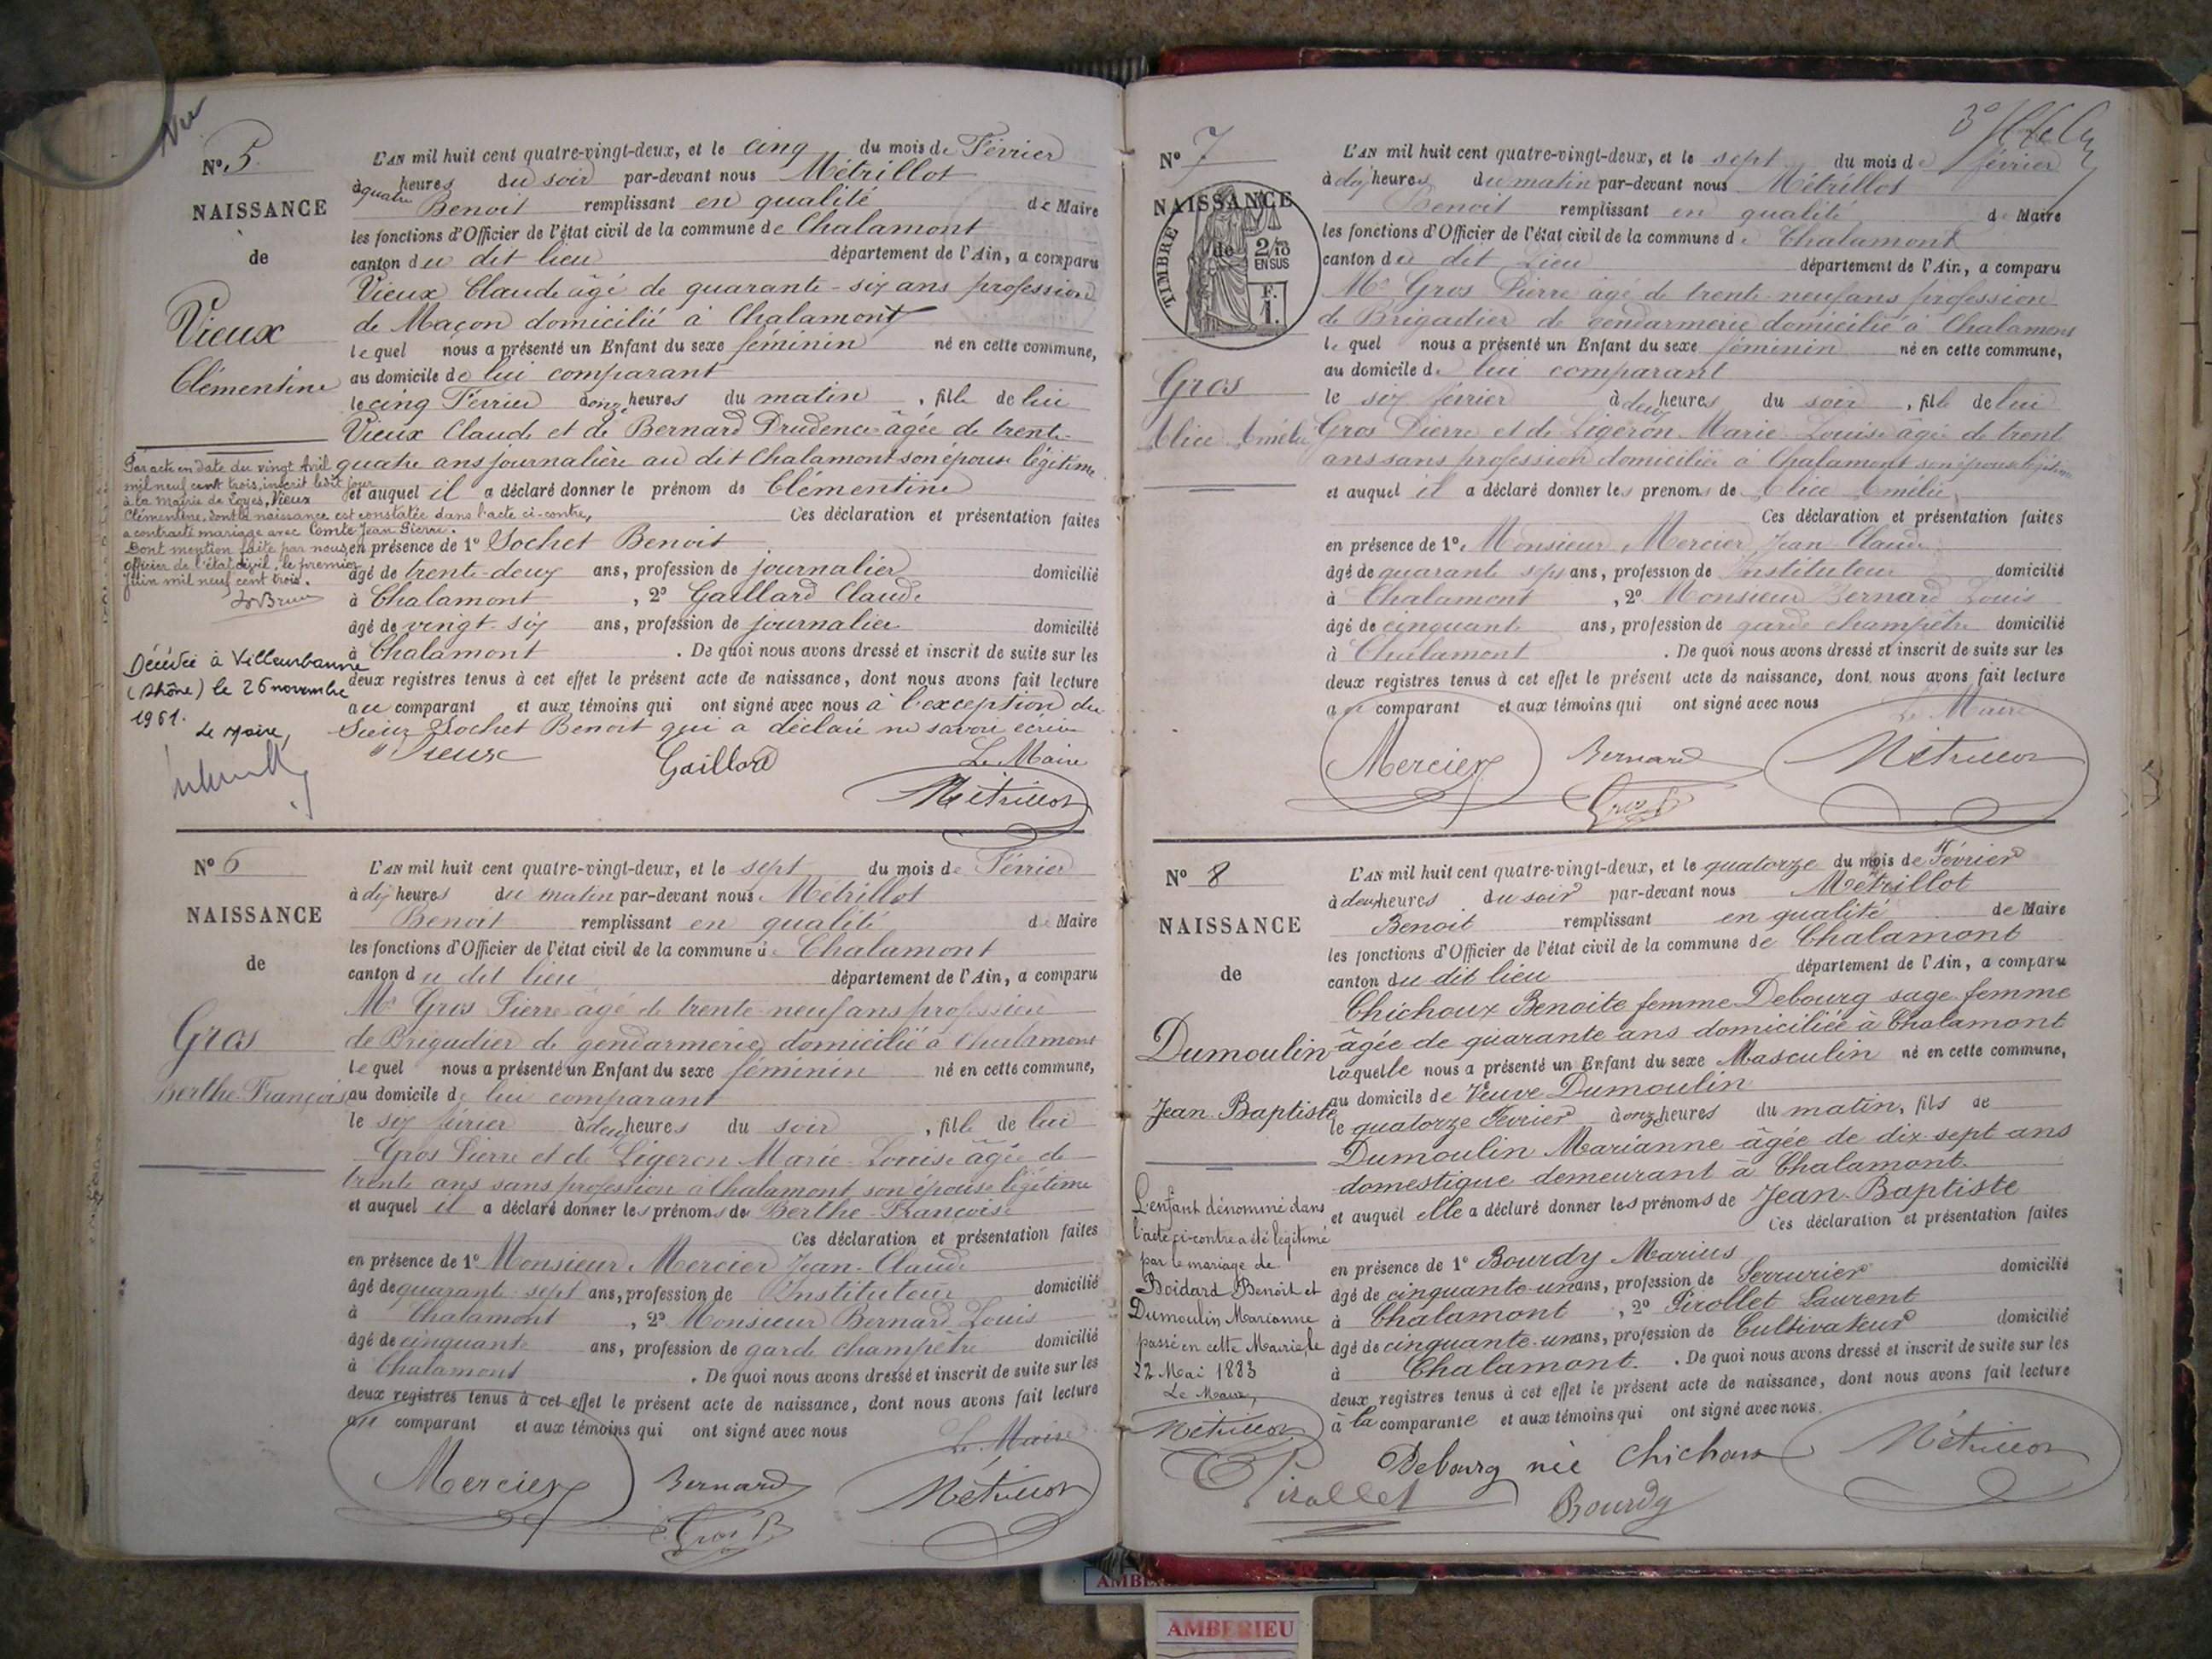 Vu
N° 5.
NAISSANCE
de
Vieux
Clémentine
L'AN mil huit cent quatre-vingt-deux, et le cinq du mois de Février
à quatre heures du soir par-devant nous Métrillot
Benoit remplissant en qualité de Maire
les fonctions d'Officier de l'état civil de la commune de Chalamont
canton du dit lieu département de l'Ain, a comparu
Vieux Claude âgé de quarante-six ans profession
de Maçon domicilié à Chalamont
lequel nous a présenté un Enfant du sexe féminin né en cette commune,
au domicile de lui comparant
le cinq Février à onze heures du matin, fille de lui
Vieux Claude et de Bernard Prudence âgée de trente-
quatre ans journalière au dit Chalamont son épouse légitime
et auquel il a déclaré donner le prénom de Clémentine
Ces déclaration et présentation faites
en présence de 1° Sochet Benoit
âgé de trente-deux ans, profession de journalier domicilié
à Chalamont, 2° Gaillard Claude
âgé de vingt-six ans, profession de journalier domicilié
à Chalamont. De quoi nous avons dressé et inscrit de suite sur les
deux registres tenus à cet effet le présent acte de naissance, dont nous avons fait lecture
au comparant et aux témoins qui ont signé avec nous à l'exception du
Sieur Sochet Benoit qui a déclaré ne savoir écrire
Vieux Gaillard Le Maire
Métrillot
Par acte en date du vingt Avril
mil neuf cent trois, inscrit ledit jour
à la Mairie de Loyes, Vieux
Clémentine, dont la naissance est constatée dans l'acte ci-contre,
a contracté mariage avec Comte Jean Pierre.
Dont mention faite par nous,
officier de l'état civil, le premier
Juin mil neuf cent trois.
Décédée à Villeurbanne
(Rhône) le 26 novembre
1961.
Le Maire,
N° 6
NAISSANCE
de
Gros
Berthe-Françoise
L'AN mil huit cent quatre-vingt-deux, et le sept du mois de Février
à dix heures du matin par-devant nous Métrillot
Benoit remplissant en qualité de Maire
les fonctions d'Officier de l'état civil de la commune de Chalamont
canton du dit lieu département de l'Ain, a comparu
Mr Gros Pierre âgé de trente-neuf ans profession
de Brigadier de gendarmerie domicilié à Chalamont
lequel nous a présenté un Enfant du sexe féminin né en cette commune,
au domicile de lui comparant
le six février à deux heures du soir, fille de lui
Gros Pierre et de Ligeron Marie-Louise âgée de
trente ans sans profession à Chalamont son épouse légitime
et auquel il a déclaré donner les prénoms de Berthe-Françoise
Ces déclaration et présentation faites
en présence de 1° Monsieur Mercier Jean-Claude
âgé de quarante-sept ans, profession de Instituteur domicilié
à Chalamont, 2° Monsieur Bernard Louis
âgé de cinquante ans, profession de garde champêtre domicilié
à Chalamont. De quoi nous avons dressé et inscrit de suite sur les
deux registres tenus à cet effet le présent acte de naissance, dont nous avons fait lecture
au comparant et aux témoins qui ont signé avec nous
Le Maire
Mercier Bernard Métrillot
Gros P
N° 7
NAISSANCE
de
TIMBRE
2/10
EN SUS
F.
1.
Gros
Alice Amélie
L'AN mil huit cent quatre-vingt-deux, et le sept du mois de février
à dix heures du matin par-devant nous Métrillot
Benoit remplissant en qualité de Maire
les fonctions d'Officier de l'état civil de la commune de Chalamont
canton du dit Lieu département de l'Ain, a comparu
Mr Gros Pierre âgé de trente-neuf ans profession
de Brigadier de gendarmerie domicilié à Chalamont
lequel nous a présenté un Enfant du sexe féminin né en cette commune,
au domicile de lui comparant
le six février à deux heures du soir, fille de lui
Gros Pierre et de Ligeron Marie-Louise âgée de trente
ans sans profession domiciliée à Chalamont son épouse légitime
et auquel il a déclaré donner les prénoms de Alice Amélie,
Ces déclaration et présentation faites
en présence de 1° Monsieur Mercier Jean-Claude
âgé de quarante sept ans, profession de Instituteur domicilié
à Chalamont, 2° Monsieur Bernard Louis
âgé de cinquante ans, profession de garde champêtre domicilié
à Chalamont. De quoi nous avons dressé et inscrit de suite sur les
deux registres tenus à cet effet le présent acte de naissance, dont nous avons fait lecture
au comparant et aux témoins qui ont signé avec nous
Le Maire
Mercier Bernard Métrillot
Gros P
N° 8
NAISSANCE
de
Dumoulin
Jean-Baptiste
L'AN mil huit cent quatre-vingt-deux, et le quatorze du mois de Février
à deux heures du soir par-devant nous Métrillot
Benoit remplissant en qualité de Maire
les fonctions d'Officier de l'état civil de la commune de Chalamont
canton du dit lieu département de l'Ain, a comparu
Chichoux Benoite femme Debourg sage-femme
âgée de quarante ans domiciliée à Chalamont
laquelle nous a présenté un Enfant du sexe Masculin né en cette commune,
au domicile de Veuve Dumoulin
le quatorze Février à onze heures du matin, fils de
Dumoulin Marianne âgée de dix-sept ans
domestique demeurant à Chalamont.
et auquel elle a déclaré donner les prénoms de Jean-Baptiste
Ces déclaration et présentation faites
en présence de 1° Bourdy Marius
âgé de cinquante-un ans, profession de Serrurier domicilié
à Chalamont, 2° Pirollet Laurent
âgé de cinquante-un ans, profession de Cultivateur domicilié
à Chalamont. De quoi nous avons dressé et inscrit de suite sur les
deux registres tenus à cet effet le présent acte de naissance, dont nous avons fait lecture
à la comparante et aux témoins qui ont signé avec nous.
Debourg née Chichoux Métrillot
Pirollet Bourdy
L'enfant dénommé dans
l'acte ci-contre a été légitimé
par le mariage de
Boidard Benoit et
Dumoulin Marianne
passé en cette Mairie, le
22 Mai 1883
Le Maire,
Métrillot
AMBERIEU